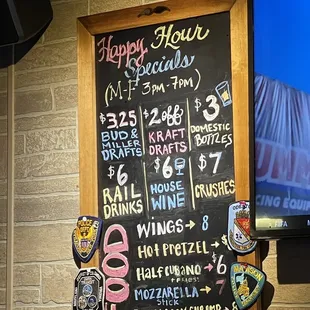 Happy Hour
Specials
(M-F 3PM-7PM)
$3.25
BUD &
MILLER
DRAFTS
$2 off
KRAFT
DRAFTS
$3
DOMESTIC
BOTTLES
$6
RAIL
DRINKS
$6
HOUSE
WINE
$7
CRUSHES
FOOD
WINGS → 8
HOT PRETZEL →
HALF CUBANO → $6
MOZZARELLA → $7
STICK
CING EQUIP